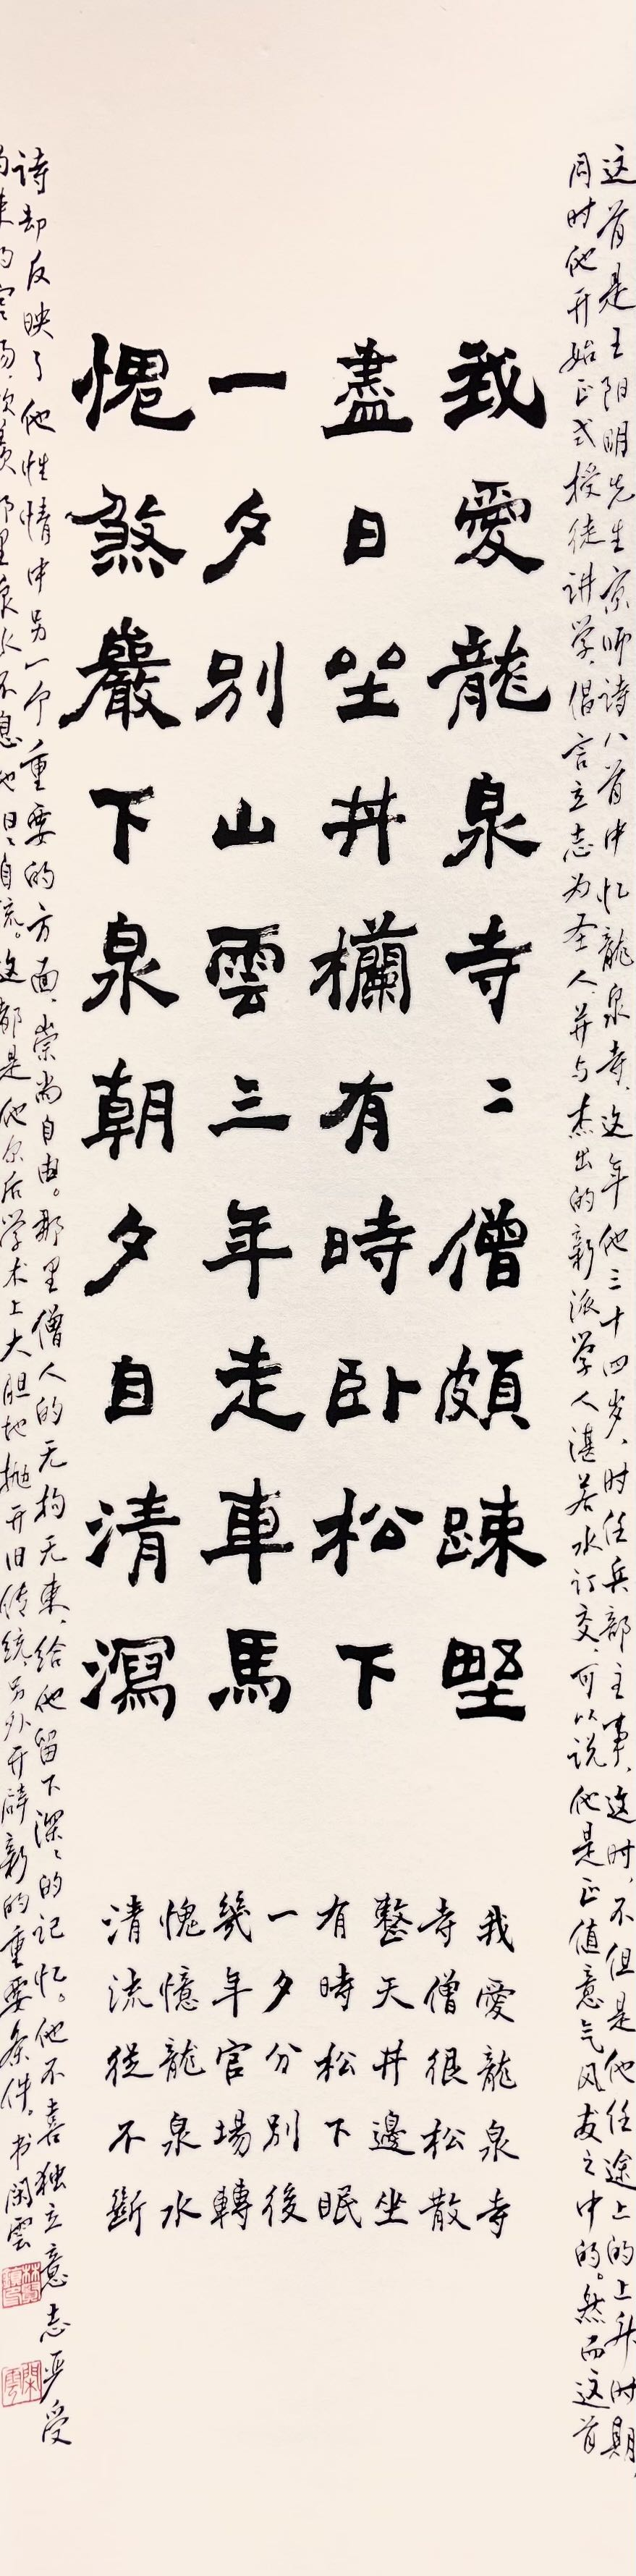 这首是王阳明先生京师诗八首中忆龙泉寺、这年他三十四岁、时任兵部主事、这时、不但是他仕途上的上升时期、
同时他开始正式授徒讲学、倡言立志为圣人、并与杰出的新派学人湛若水订交、可以说他是正值意气风发之中的。然而这首
我愛龍泉寺〻僧頗踈野
盡日坐丼欄有時卧松下
一夕別山雲三年走車馬
愧煞巖下泉朝夕自清瀉
我愛龍泉寺
寺僧很松散
整天井邊坐
有時松下眠
一夕分別後
幾年官場轉
愧憶龍泉水
清流從不斷
诗却反映了他性情中另一个重要的方面、崇尚自由。那里僧人的无拘无束、给他留下深〻的记忆。他不喜独立意志严受
约束的官场、欣羡那里泉水不息地日〻自流。这都是他尔后学术上大胆地抛开旧传统另外开辟新的重要条件。书闲雲
閑雲